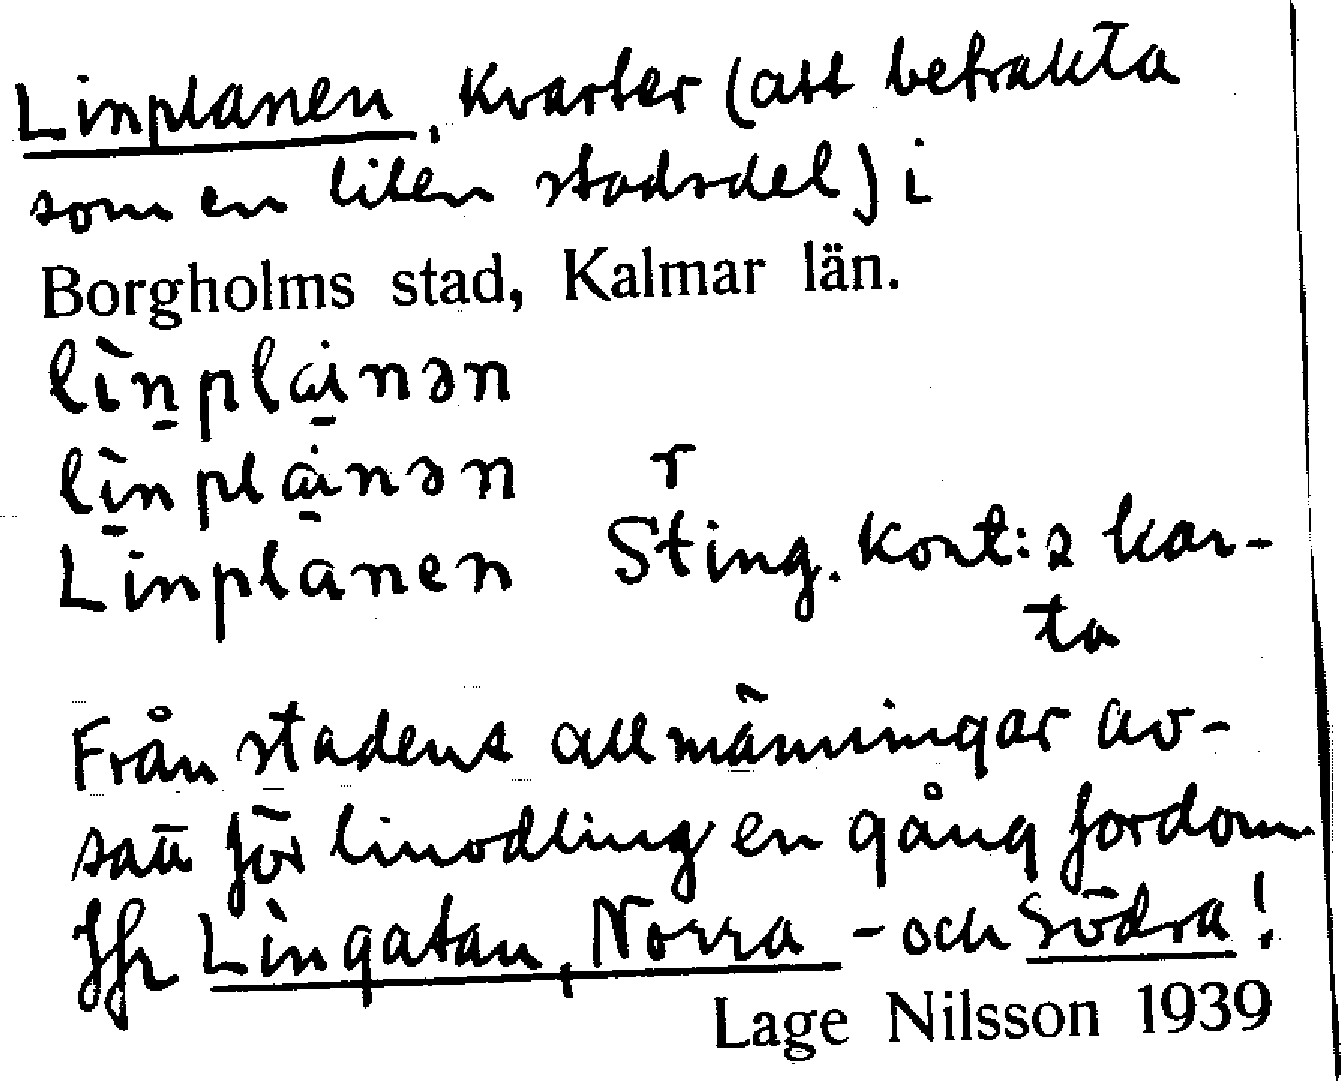 Linplanen, kvarter (att betrakta
som en liten stadsdel) i
Borgholms stad, Kalmar län.
lìnplańən
lìnplańən r
Linplanen Sting. kont:s kar-
ta
Från stadens allmänningar av-
satt för linodling en gång fordom
Jfr Lingatan, Norra - och Södra!
Lage Nilsson 1939